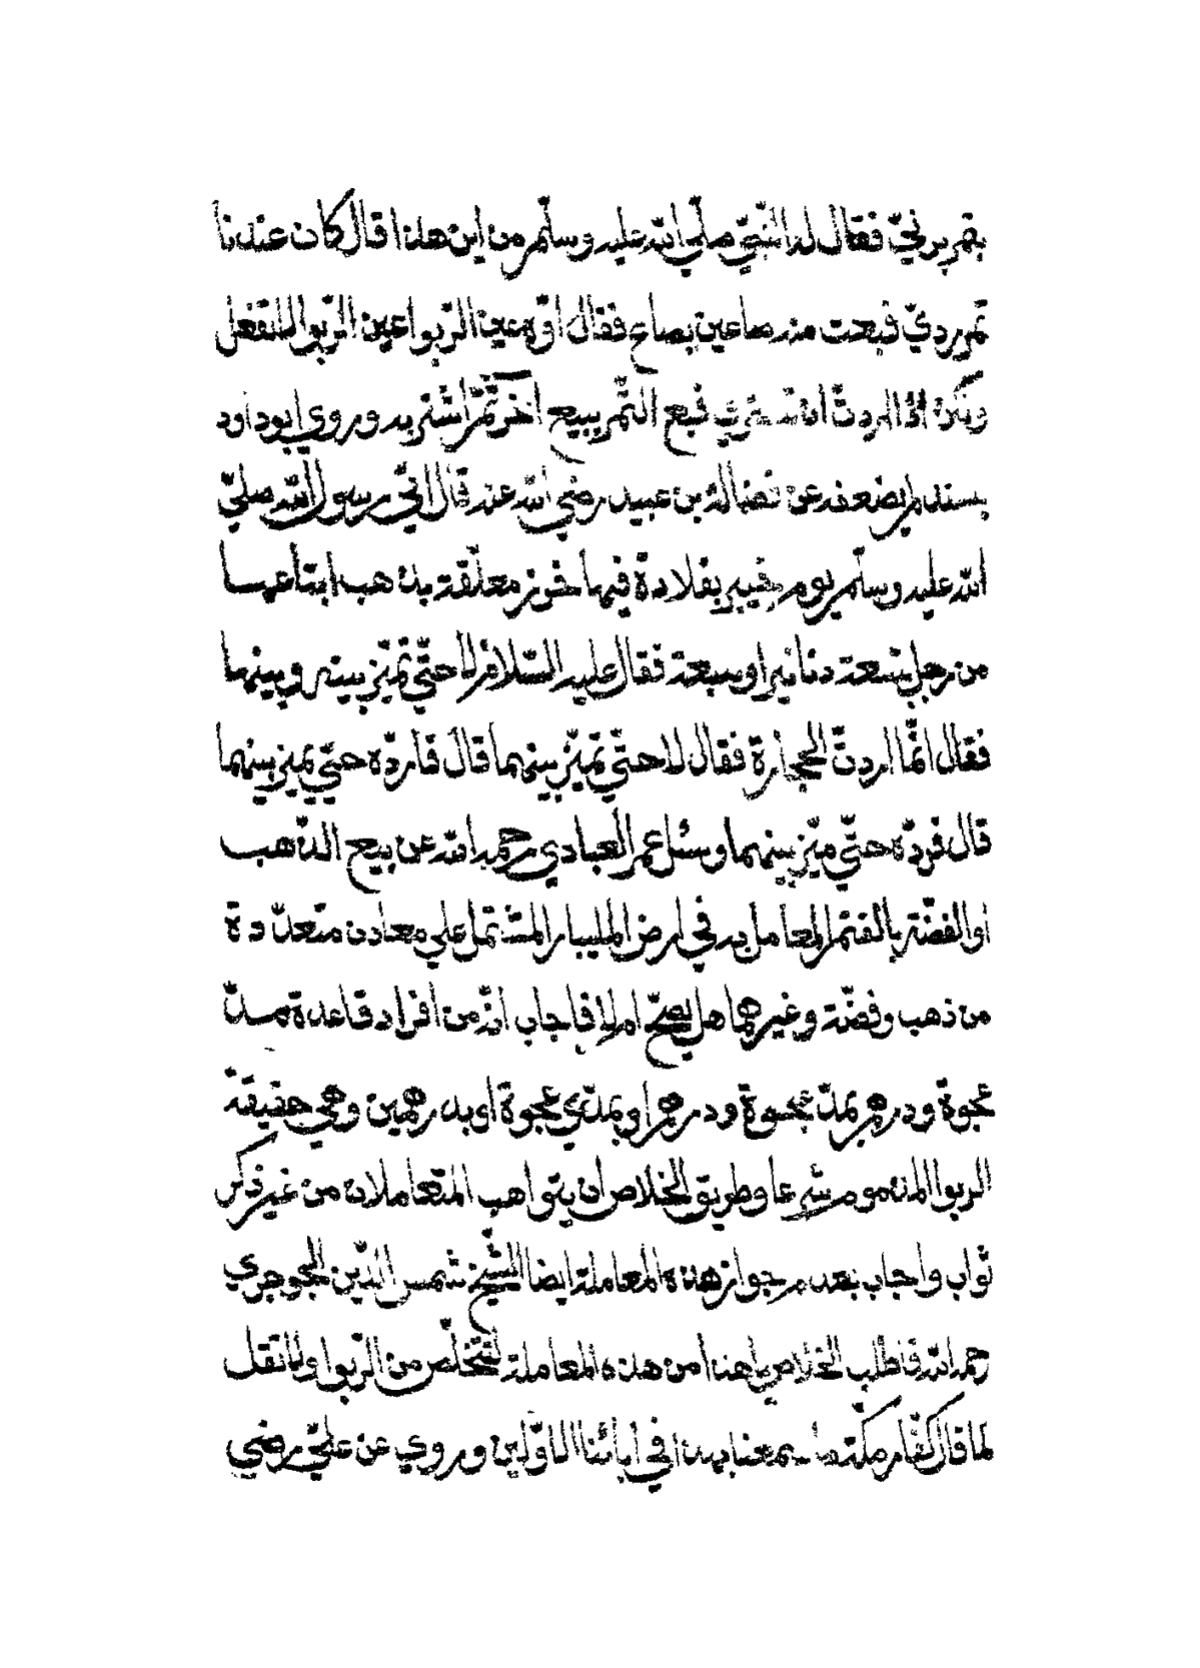 بتمر برنيّ فقال له النّبيّ صلّي الله عليه وسلّم من اين هذا قال كان عندنا
تمر رديّ فبعت منه صاعين بصاع فقال اوّه عين الرّبوا عين الرّبوا لا تفعل
ولكن اذا اردتّ ان تشتري فبع التّمر ببيع آخر ثمّ اشتر به وروي ابو داود
بسند لم يضعفه عن فضالة بن عبيد رضي الله عنه قال اتي رسول الله صلّي
الله عليه وسلّم يوم خيبر بقلادة فيها خرز معلّقة بذهب ابتاعها
من رجل بتسعة دنانير او سبعة فقال عليه السّلام لا حتّي تميّز بينه وبينها
فقال انّما اردتّ الحجارة فقال لا حتّي تميّز بينهما قال فاردّه حتّي يميز بينهما
قال فردّه حتّي ميّز بينهما وسئل عمر العبادي رحمه الله عن بيع الذّهب
او الفضّة بالفتم المعامل به في ارض المليبار المشتمل علي معادن متعدّدة
من ذهب وفضّة وغيرهما هل يصحّ ام لا فاجاب انّه من افراد قاعدة مدّ
عجوة ودرهم بمدّ عجوة ودرهم او بمدّي عجوة او بدرهمين وهي حقيقة
الربوا المذموم شرعا وطريق الخلاص ان يتواهب المتعاملان من غير ذكر
ثواب واجاب بعدم جواز هذه المعاملة ايضا الشّيخ شمس الدّين الجوجري
رحمه الله فاطلب الخلاص يا هذا من هذه المعاملة لتتخلّص من الرّبوا ولا تقل
لما قال كفّار مكّة ما سمعنا بهذا في ابائنا الاوّلين وروي عن عليّ رضي